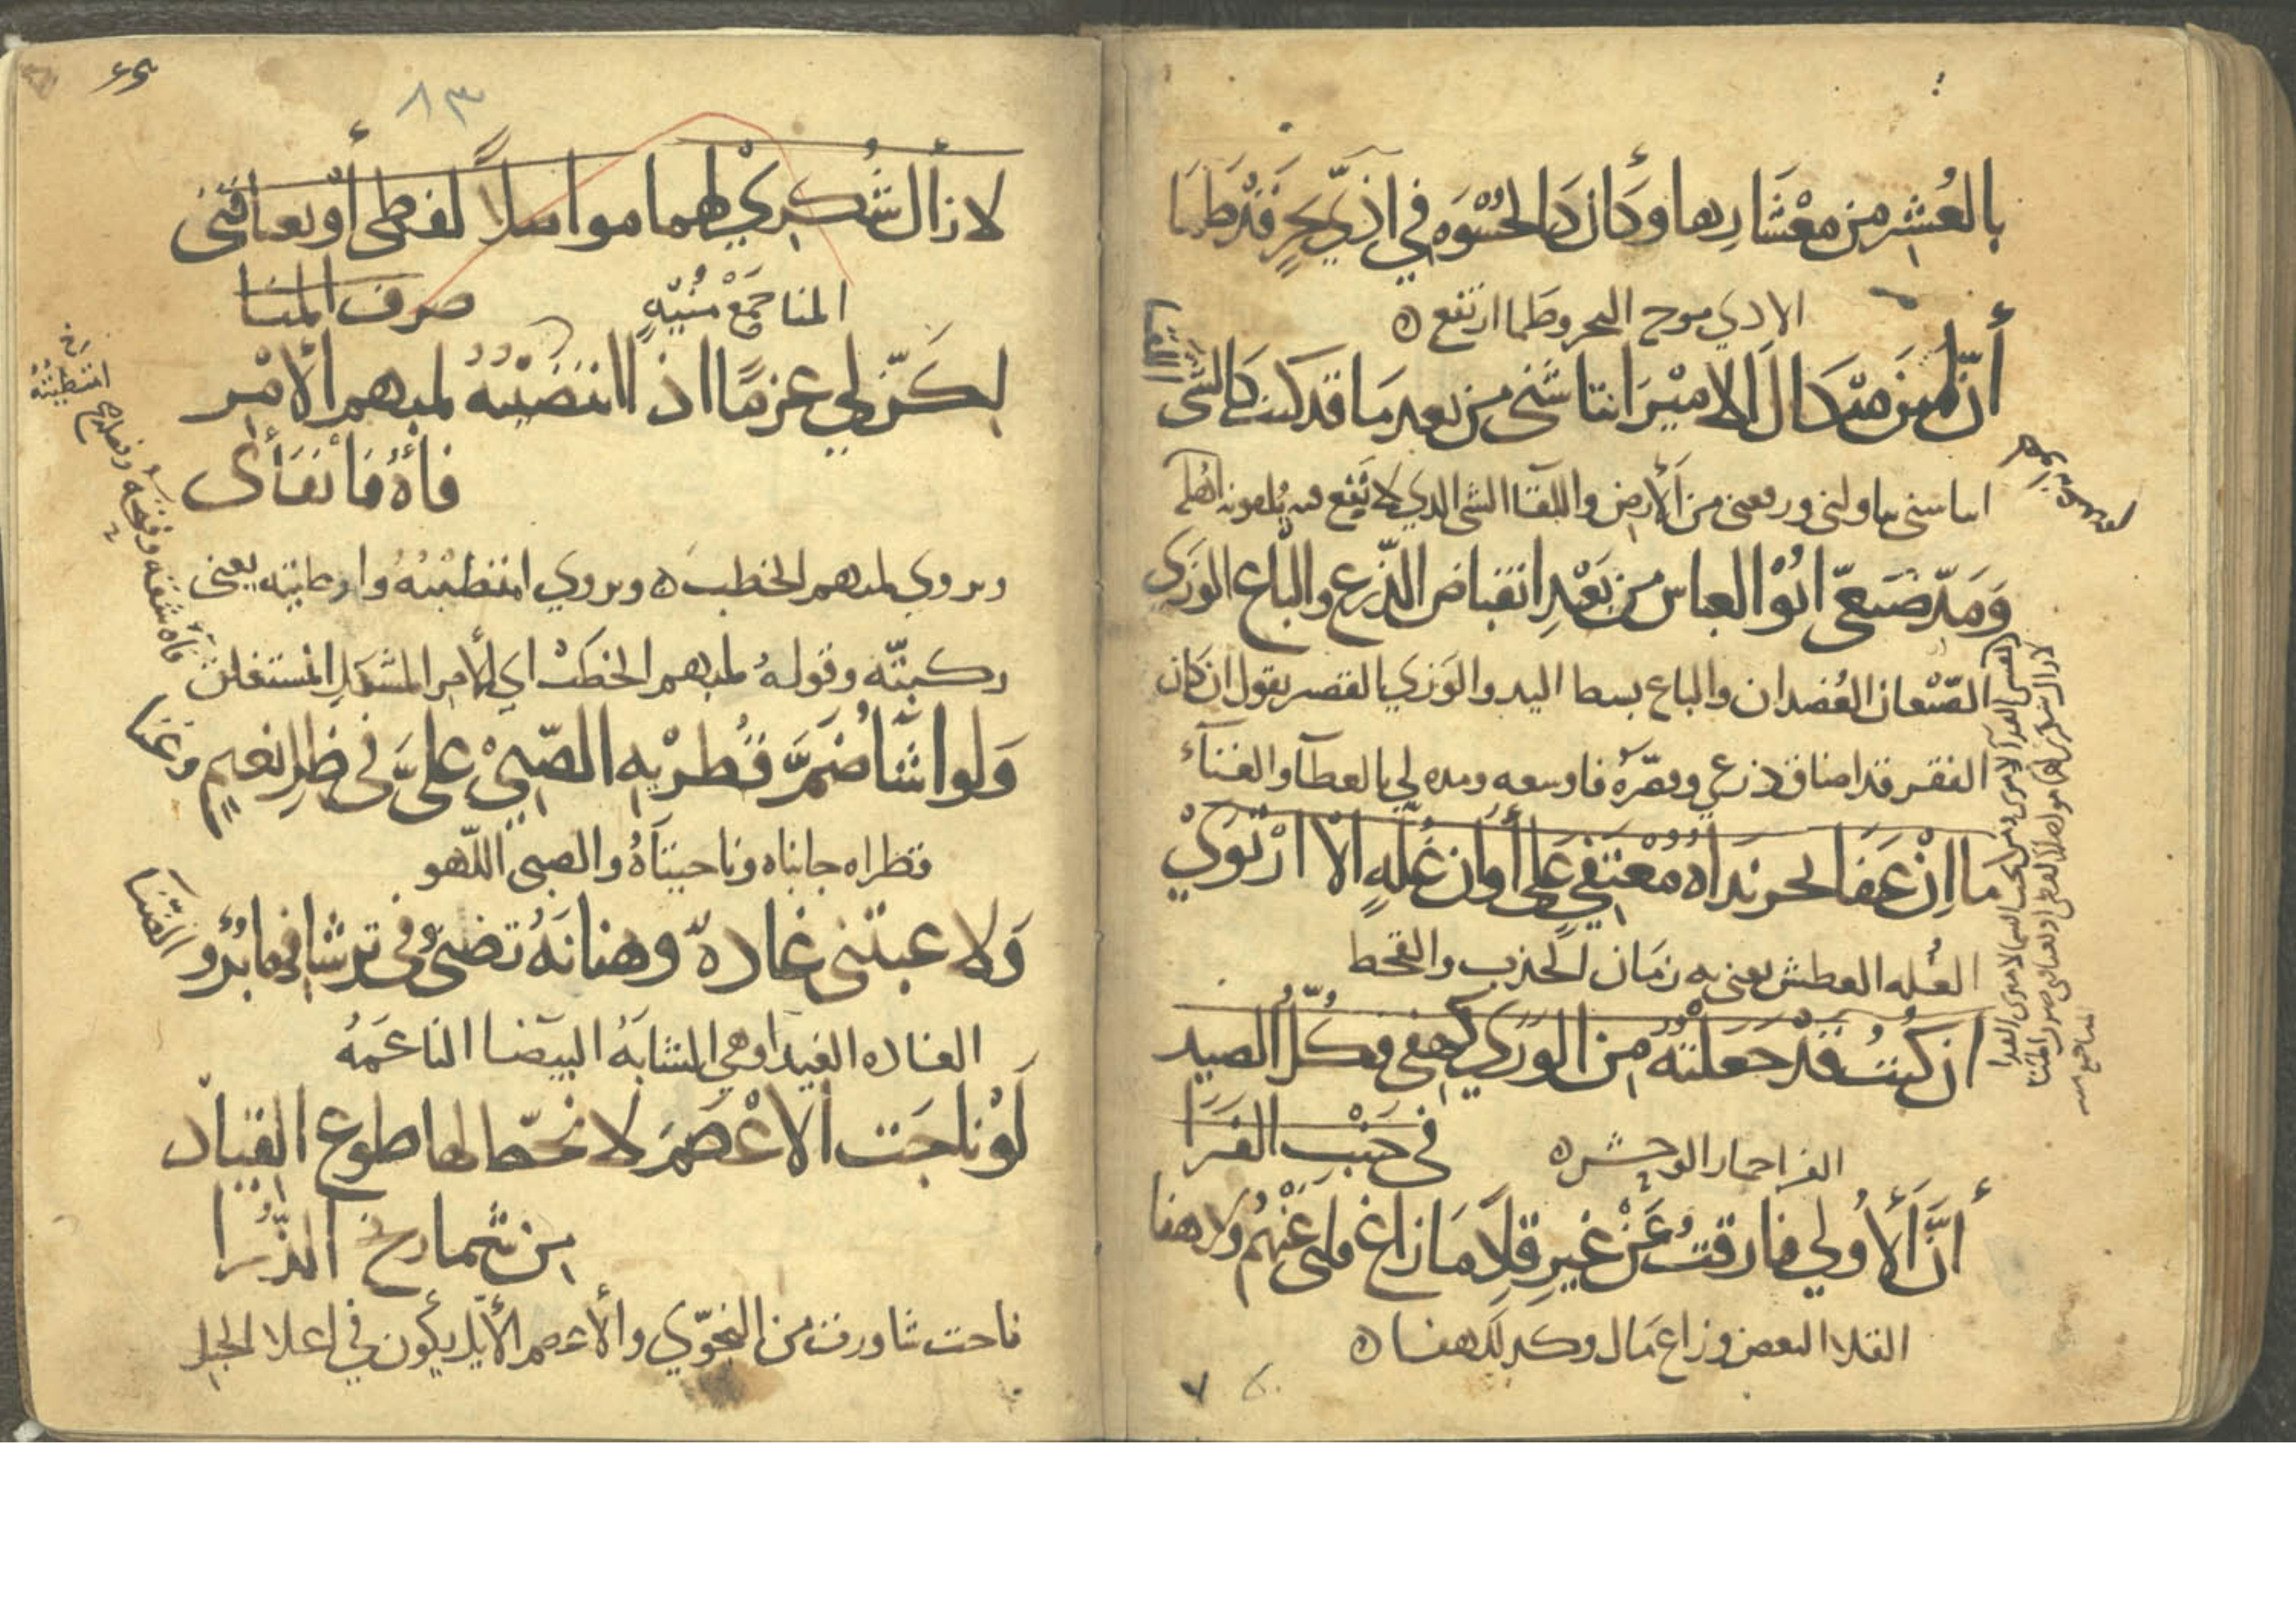 بالعُشر من معْشَارها وكأن كالحُسْوَه في اذيّ بحرٍ قد طما
الاذي موج البحر وطما ارتفع ه
أنّ ابن ميْكال الاميْرَ انتاشنى من بعد مَا قد كنت كالشى اللَّقا
انتاشنى تناولنى ورفعنى من الأرض واللقا الشى الذي لا
وَمَدّ ضبعىّ ابُوْ العباس من بَعْدِ انقباض الذّرع والباع الوَزَى
الضّبْعان العُضدان والباع بسط اليد والوَزَي بالقصر يقول ان كان
الفقر قد اضاق ذرعي وقصّرهُ فاوسعه ومده لي بالعطآ والغنآء
ما اِنْ عَفَا لحر نداهُ مُعْتفي عَلى أوان غُلّهٍ الّا ارْتَوَيْ
الغُله العطش يعنى به زمَان الجدب والقحط
ان كُنتُ قدْ جَعلْتهُ منَ الورَي لهفى فكلُّ الصيد
في جَنْب الفَرَا
الفرا حمار الوحش ه
أنَّ الأُولي فارقتُ عَنْ غيرِ قِلاً مَا زاغ قلبى عَنْهُم ولا هفا
القلا البغض وزاغ مَال وكذلك هفا ه
٨٣
لازال شُكريْ لهما مواصلاً لفظي أوْ يعتاقَنى
صرف المنا
المنا جَمْعْ مُنيّهٍ
لكَنّ لي عزمًا اذا انتضَيْتهُ لمبهم الأمْر
فأهُ فانفأى
ويروي لمبهم الخطب ه ويروي امتطيْتهُ وارتطيته يعنى
ركبتّه وقولهُ لمبهم الخطبْ اي الأمر المشكل المستغلق
فآه شقّه وفتحه
وَلو اشَا ضَمَّ قُطريْه الصّبىْ علىَّ فى ظل نعيمٍ وغنا
قطراه جانباه وناحيتآهُ والصبى اللّهو
وَلاعبتْنى غادهّ وهنانَهُ تضنىُّ فى ترشافها بُرْؤ الضّنَا
الغاده الغيدا وهي الشابّهُ البيضا الناعمَهُ
لَوْ ناجَت الاعْصَمَ لانحطّ لها طوع القيادْ
من شماريخ الذُّرا
ناجت شاورت من النجوّي والأعصم الأيّل يكون في اعلا الجبل